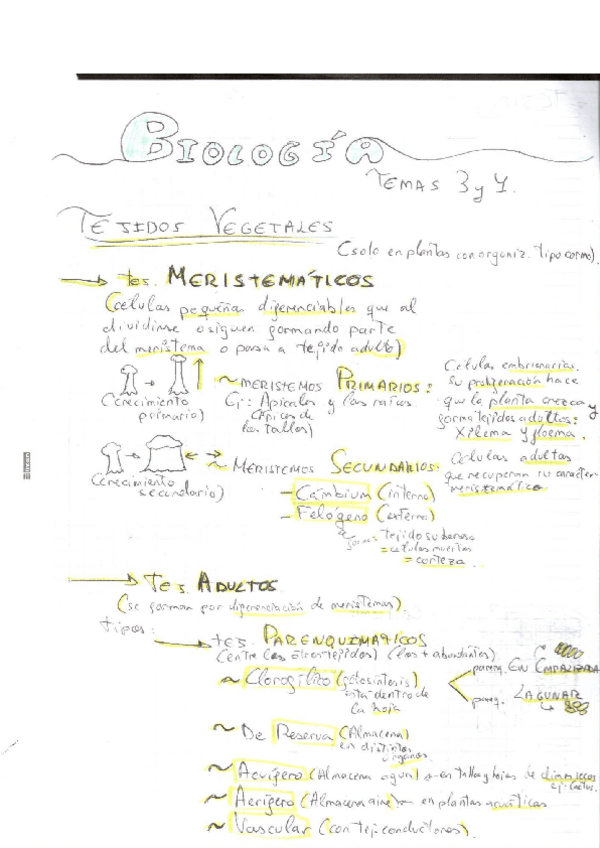 BIOLOGÍA
TEMAS 3 y 4.
TEJIDOS VEGETALES
(solo en plantas con organiz. tipo cormo).
→ tes. MERISTEMÁTICOS
(células pequeñas diferenciables que al
dividirse o siguen formando parte
del meristema o pasa a tejido adulto)
(crecimiento primario)
~ MERISTEMOS PRIMARIOS:
Ej: Apicales y las raíces
(ápices de
los tallos)
Células embrionarias.
Su proliferación hace
que la planta crezca y
forma tejidos adultos:
Xilema y floema.
(crecimiento secundario)
~ MERISTEMOS SECUNDARIOS:
Células adultas
que recuperan su carácter
meristemático
- Cambium (interno)
- Felógeno (externo)
forma: tejido suberoso
= células muertas
= corteza.
→ tes. ADULTOS
(se forman por diferenciación de meristemas).
tipos:
→ tes. PARENQUIMÁTICOS
(entre los otros tejidos) (los + abundantes)
~ Clorofílico (fotosíntesis)
está dentro de
la hoja
parenq. EN EMPALIZADA
parenq. LAGUNAR
~ De Reserva (Almacena)
en distintos
órganos
~ Acuífero (Almacena agua) → en tallo y hojas de
ej: cactus.
~ Aerífero (Almacena aire) → en plantas acuáticas
~ Vascular (con tej. conductores).